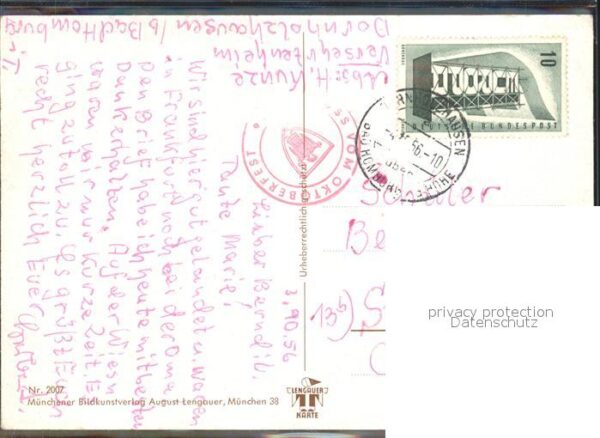 Abs: H. Kunze
Versehrtenheim
Dornholzhausen / b Bad Homburg
v. T.
3.10.56
Lieber Bernd u.
Tante Marie!
Wir sind hier gut gelandet u. waren
in Frankfurt noch bei der Oma
Den Brief habe ich heute mit besten
Dank erhalten. Auf der Wiesn
waren wir nur kurze Zeit. Es
ging zu toll zu. Es grüßt Euch
recht herzlich Euer
10
DEUTSCHE BUNDESPOST
56.-10
VOM OKTOBERFEST
Schüler
Be
13b) S
privacy protection
Datenschutz
Urheberrechtlich geschützt
Nr. 2007
Münchener Bildkunstverlag August Lengauer, München 38
LENGAUER
KARTE